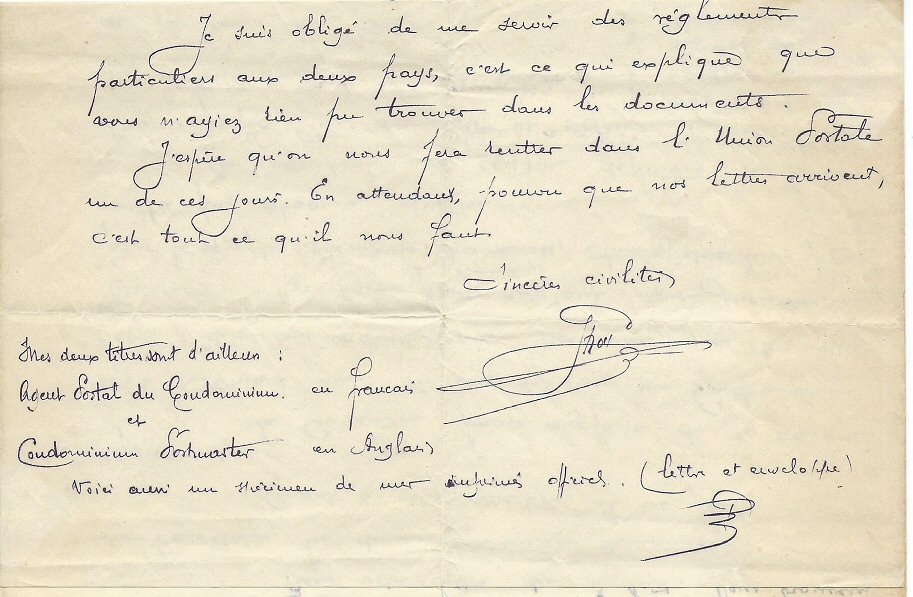 Je suis obligé de me servir des réglements
particuliers aux deux pays, c'est ce qui explique que
vous n'ayiez rien pu trouver dans les documents.
J'espère qu'on nous fera rentrer dans l'Union Postale
un de ces jours. En attendant, pourvu que nos lettres arrivent,
c'est tout ce qu'il nous faut.
Sincères civilités
Mes deux titres sont d'ailleurs :
Agent Postal du Condominium. en francais
et
Condominium Postmaster en Anglais
Voici aussi un spécimen de mes imprimés officiels. (lettre et enveloppe)